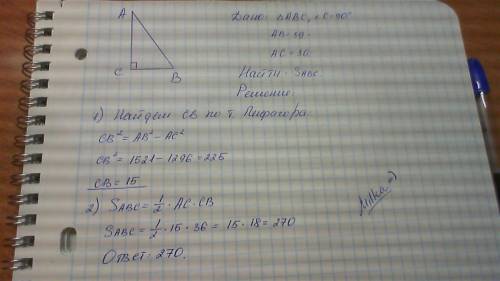 A
C
B
Дано: △ABC, ∠C=90°
AB=39.
AC=36.
Найти: S ABC.
Решение:
1) Найдем CB по т. Пифагора:
CB² = AB² - AC²
CB² = 1521 - 1296 = 225
CB = 15
2) S ABC = 1/2 · AC · CB
S ABC = 1/2 · 15 · 36 = 15 · 18 = 270
Ответ: 270.